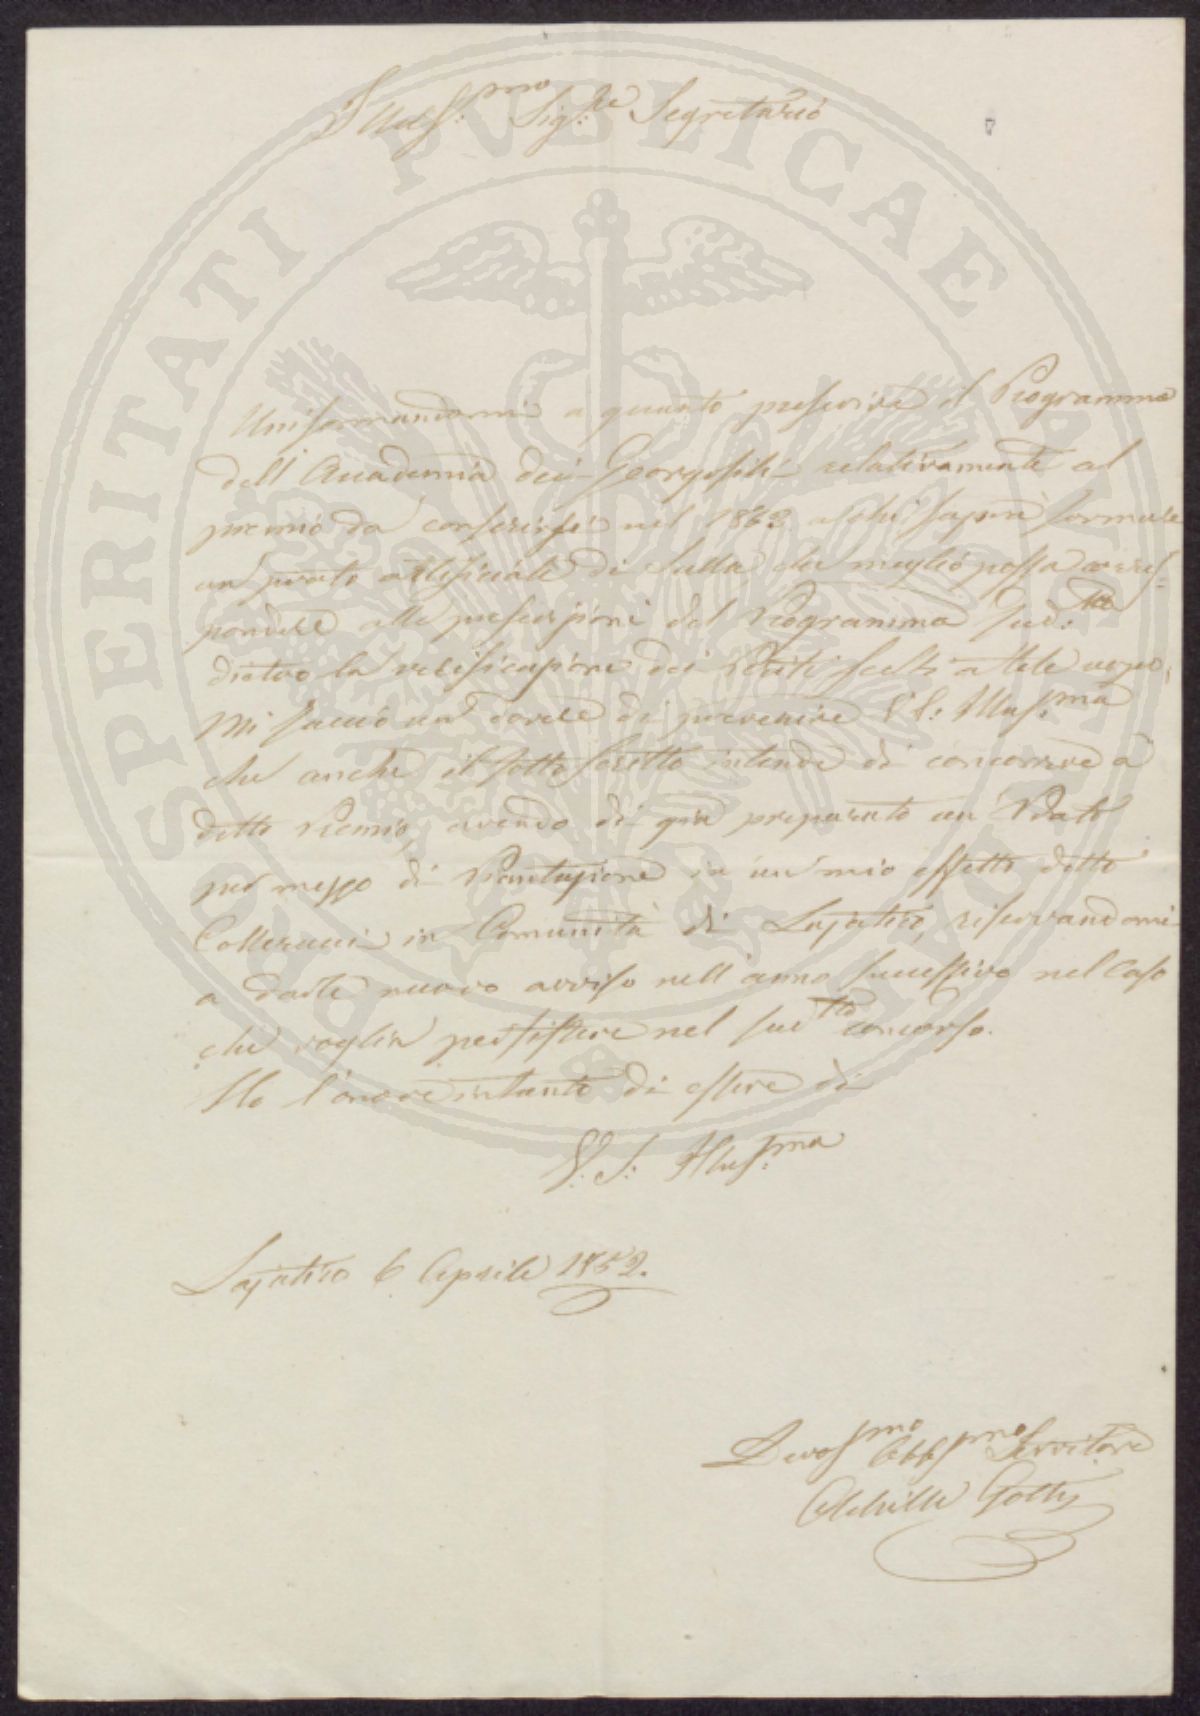 Illus.mo Sig.re Segretario
Uniformandomi a quanto prescrive il Programma
dell'Accademia dei Georgofili relativamente al
premio da conferirsi nel 1862 a chi saprà formare
un prato artificiale di Sulla che meglio possa corris-
pondere alle prescrizioni del Programma sud.to
dietro la verificazione dei Periti scelti a tale uopo,
Mi faccio un dovere di prevenire V. S. Illus.ma
che anche il sottoscritto intende di concorrere a
detto Premio, avendo di già preparato un Prato
per mezzo di Piantazione in un mio effetto detto
in Comunità di Lajatico, riservandomi
a darle nuovo avviso nell'anno successivo nel caso
che voglia persistere nel sud.tto concorso.
Ho l'onore intanto di essere di
V. S. Illus.ma
Lajatico 6 Aprile 1852.
Devos.mo Obb.mo Servitore
Achille Gotti
PROSPERITATI PUBLICAE AUGENDAE